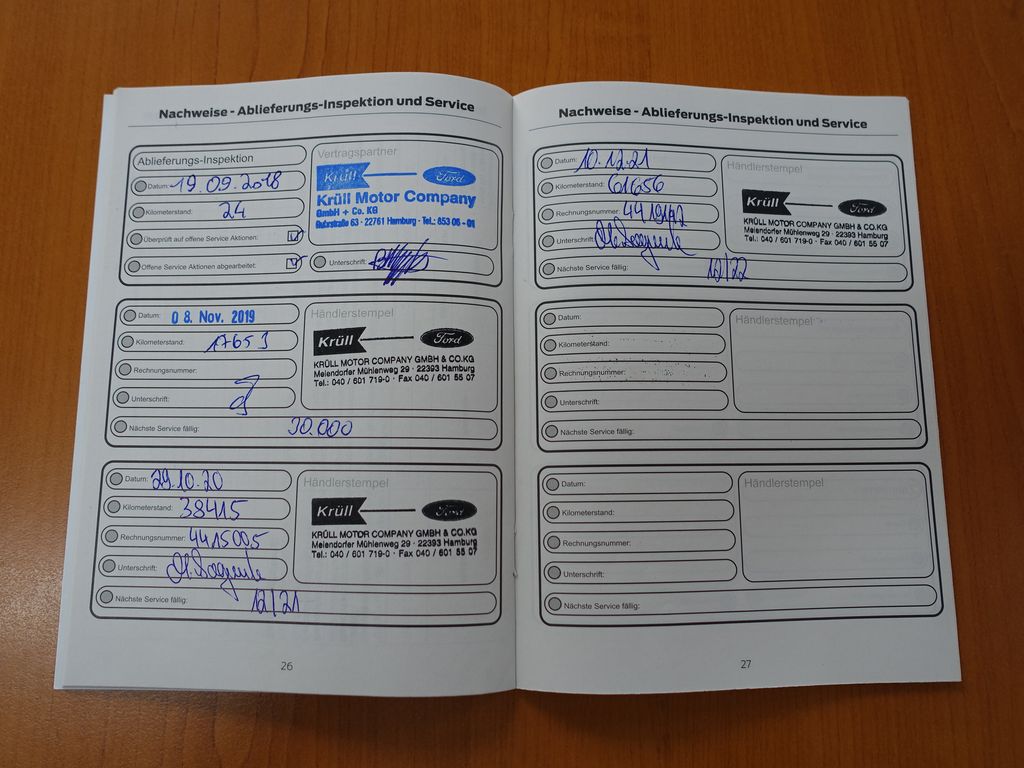 Nachweise - Ablieferungs-Inspektion und Service
Ablieferungs-Inspektion
Datum: 19.09.2018
Kilometerstand: 24
Überprüft auf offene Service Aktionen:
Offene Service Aktionen abgearbeitet:
Vertragspartner
Krüll Ford
Krüll Motor Company
GmbH + Co. KG
Ruhrstraße 63 · 22761 Hamburg · Tel.: 853 06 - 01
Unterschrift:
Datum: 08. Nov. 2019
Kilometerstand: 17653
Rechnungsnummer:
Unterschrift:
Nächste Service fällig: 30.000
Händlerstempel
Krüll Ford
KRÜLL MOTOR COMPANY GMBH & CO.KG
Meiendorfer Mühlenweg 29 · 22393 Hamburg
Tel.: 040 / 601 719-0 · Fax 040 / 601 55 07
Datum: 29.10.20
Kilometerstand: 38415
Rechnungsnummer: 4415005
Unterschrift:
Nächste Service fällig: 12/21
Händlerstempel
Krüll Ford
KRÜLL MOTOR COMPANY GMBH & CO.KG
Meiendorfer Mühlenweg 29 · 22393 Hamburg
Tel.: 040 / 601 719-0 · Fax 040 / 601 55 07
26
Nachweise - Ablieferungs-Inspektion und Service
Datum: 10.12.21
Kilometerstand: 61656
Rechnungsnummer:
Unterschrift:
Nächste Service fällig: 12/22
Händlerstempel
Krüll Ford
KRÜLL MOTOR COMPANY GMBH & CO.KG
Meiendorfer Mühlenweg 29 · 22393 Hamburg
Tel.: 040 / 601 719-0 · Fax 040 / 601 55 07
Datum:
Kilometerstand:
Rechnungsnummer:
Unterschrift:
Nächste Service fällig:
Händlerstempel
Datum:
Kilometerstand:
Rechnungsnummer:
Unterschrift:
Nächste Service fällig:
Händlerstempel
27